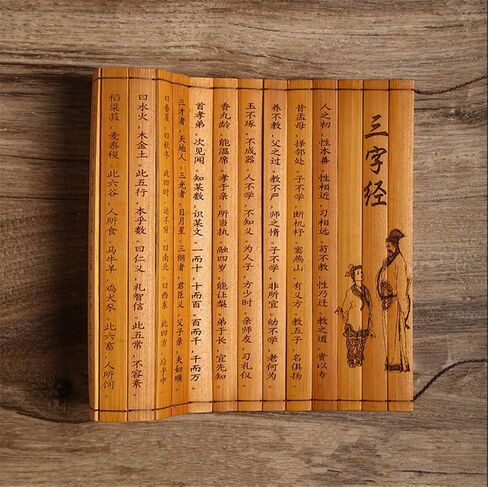 三字经
人之初，性本善，性相近，习相远，苟不教，性乃迁，教之道，贵以专
昔孟母，择邻处，子不学，断机杼，窦燕山，有义方，教五子，名俱扬
养不教，父之过，教不严，师之惰，子不学，非所宜，幼不学，老何为
玉不琢，不成器，人不学，不知义，为人子，方少时，亲师友，习礼仪
香九龄，能温席，孝于亲，所当执，融四岁，能让梨，弟于长，宜先知
首孝弟，次见闻，知某数，识某文，一而十，十而百，百而千，千而万
三才者，天地人，三光者，日月星，三纲者，君臣义，父子亲，夫妇顺
曰春夏，曰秋冬，此四时，运不穷，曰南北，曰西东，此四方，应乎中
曰水火，木金土，此五行，本乎数，曰仁义，礼智信，此五常，不容紊
稻粱菽，麦黍稷，此六谷，人所食，马牛羊，鸡犬豕，此六畜，人所饲